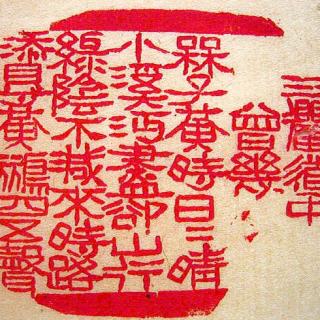 三衢道中
曾幾
槑子黃時日〻晴
小溪泛盡卻山行
綠陰不減來時路
添得黃鸝四五聲